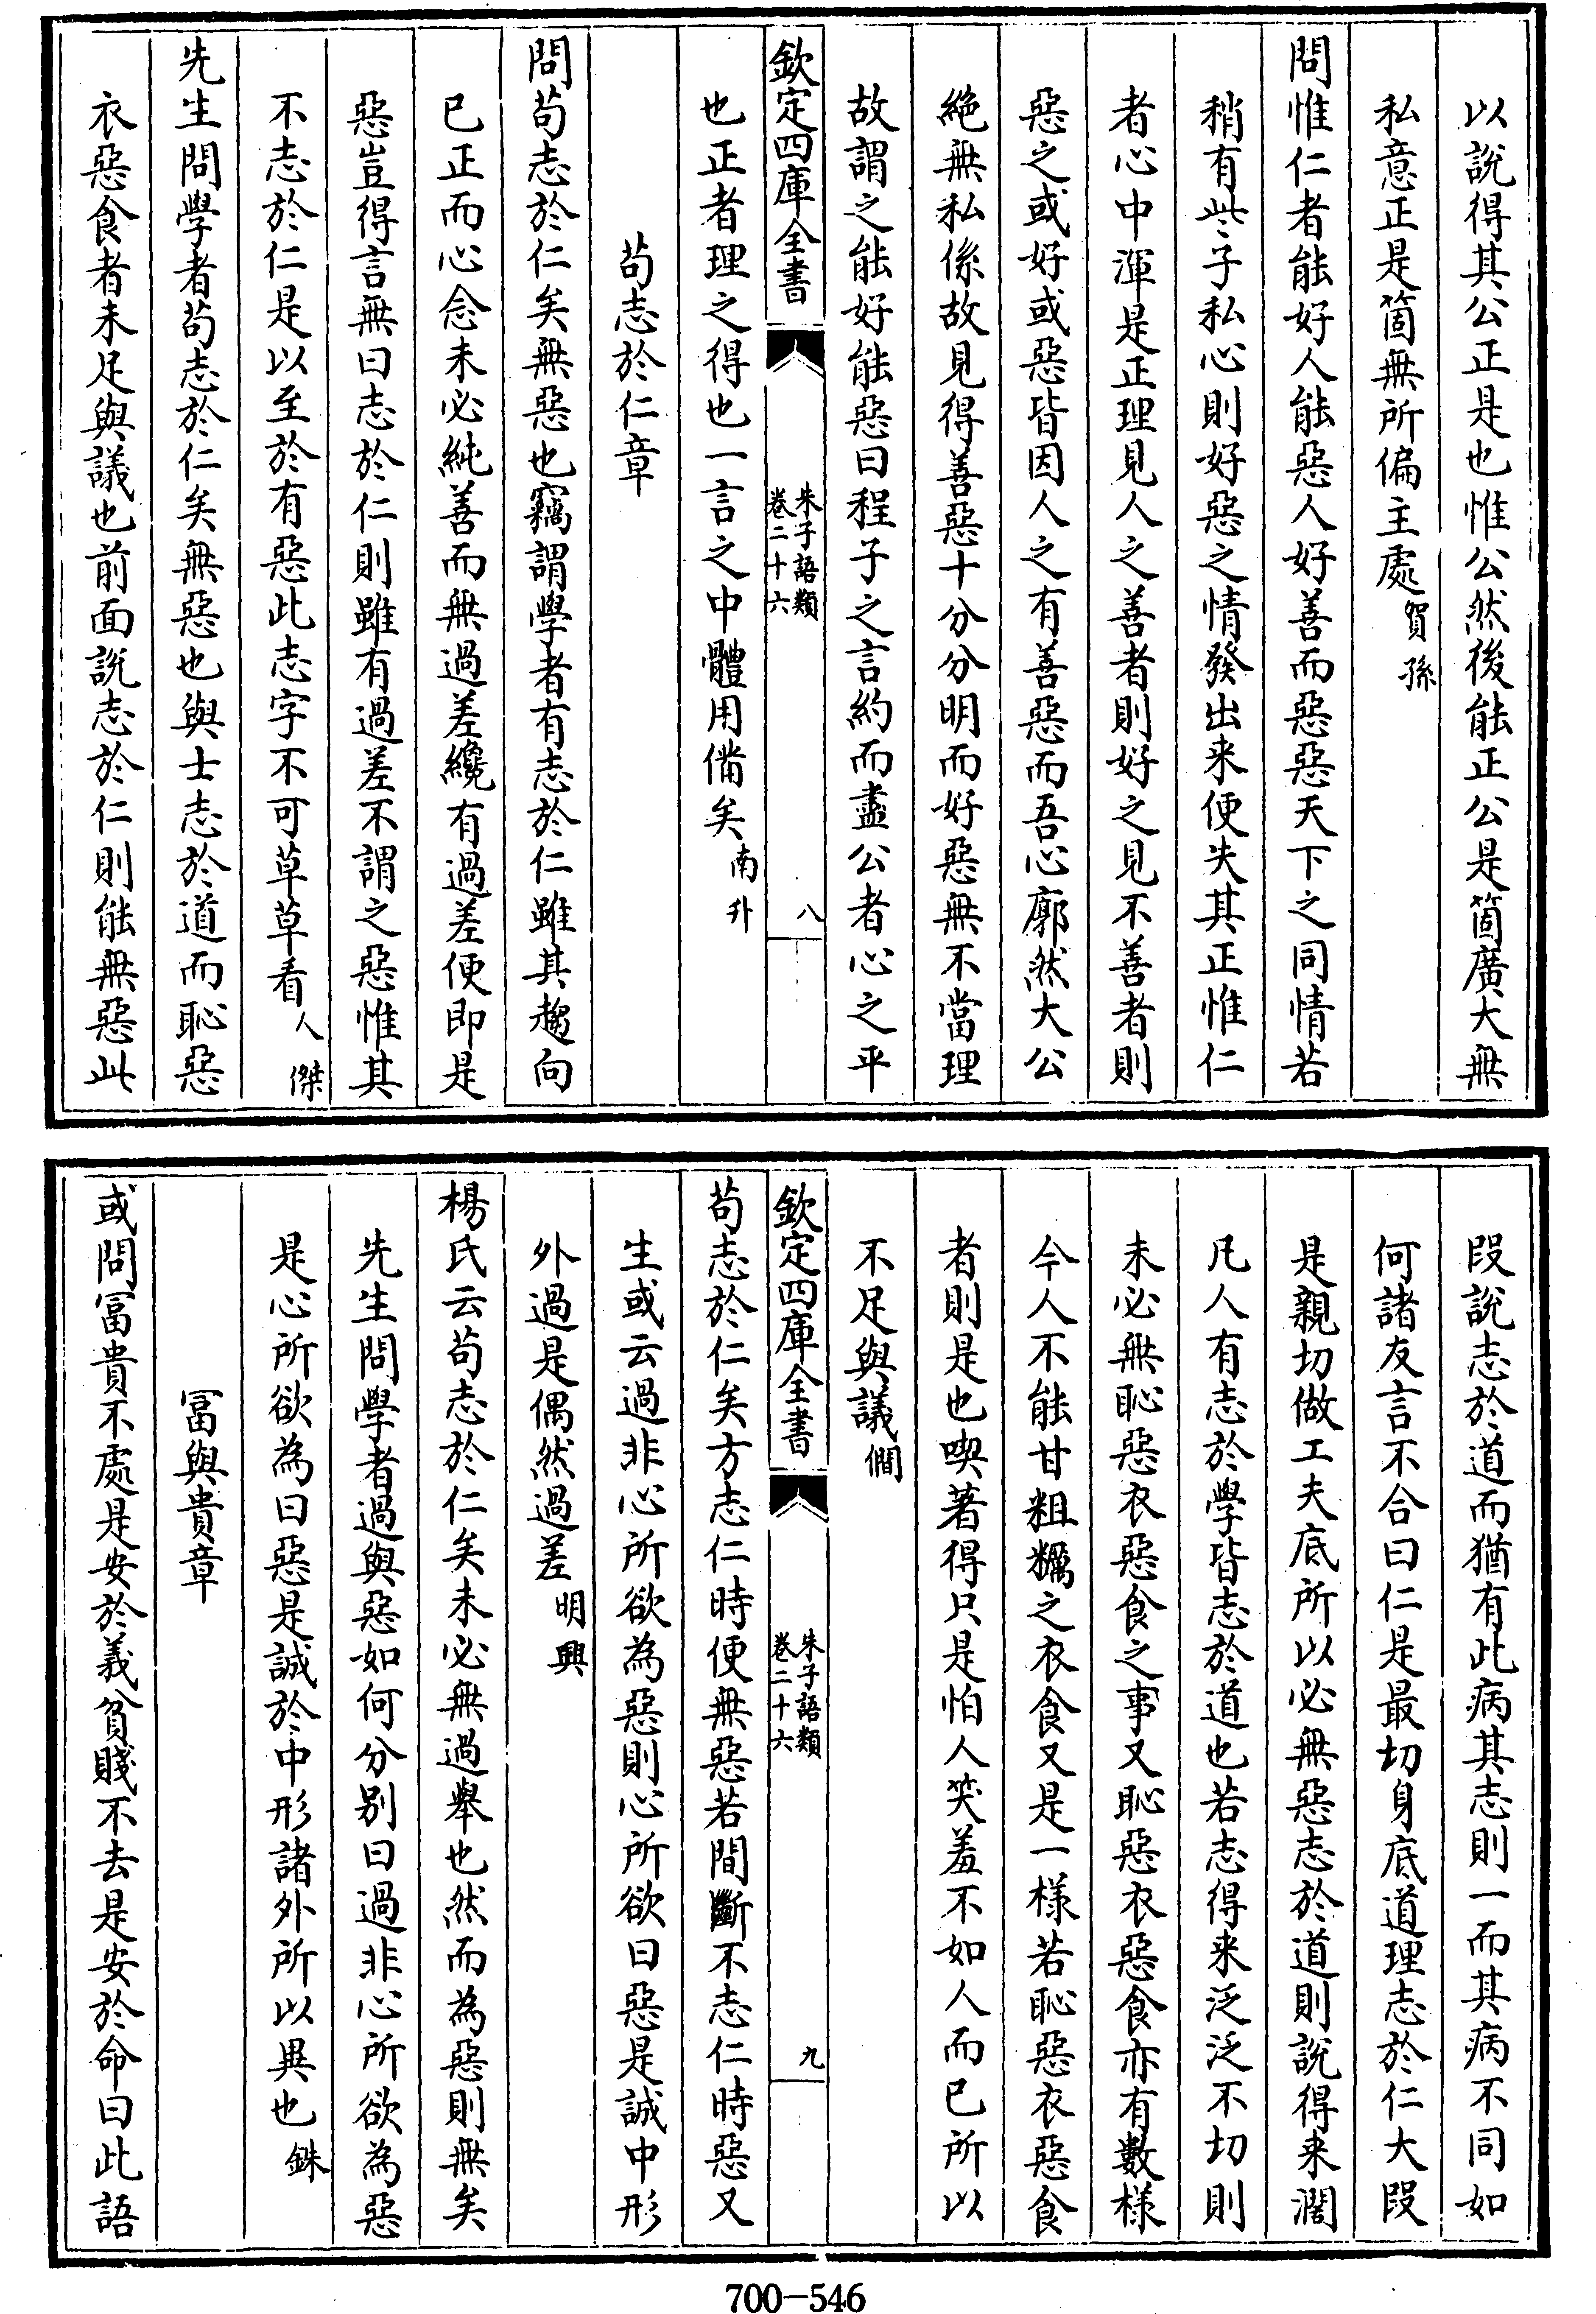 以說得其公正是也惟公然後能正公是箇廣大無
私意正是箇無所偏主處賀孫
問惟仁者能好人能惡人好善而惡惡天下之同情若
稍有些子私心則好惡之情發出来便失其正惟仁
者心中渾是正理見人之善者則好之見不善者則
惡之或好或惡皆因人之有善惡而吾心廓然大公
絶無私係故見得善惡十分分明而好惡無不當理
故謂之能好能惡曰程子之言約而盡公者心之平
欽定四庫全書
朱子語類
卷二十六
八
也正者理之得也一言之中體用備矣南升
苟志於仁章
問苟志於仁矣無惡也竊謂學者有志於仁雖其趨向
已正而心念未必純善而無過差纔有過差便即是
惡豈得言無曰志於仁則雖有過差不謂之惡惟其
不志於仁是以至於有惡此志字不可草草看人傑
先生問學者苟志於仁矣無惡也與士志於道而恥惡
衣惡食者未足與議也前面說志於仁則能無惡此
段說志於道而猶有此病其志則一而其病不同如
何諸友言不合曰仁是最切身底道理志於仁大段
是親切做工夫底所以必無惡志於道則說得来濶
凡人有志於學皆志於道也若志得来泛泛不切則
未必無恥惡衣惡食之事又恥惡衣惡食亦有數様
今人不能甘粗糲之衣食又是一様若恥惡衣惡食
者則是也喫著得只是怕人笑羞不如人而已所以
不足與議僩
欽定四庫全書
朱子語類
卷二十六
九
苟志於仁矣方志仁時便無惡若間斷不志仁時惡又
生或云過非心所欲為惡則心所欲曰惡是誠中形
外過是偶然過差明興
楊氏云苟志於仁矣未必無過舉也然而為惡則無矣
先生問學者過與惡如何分别曰過非心所欲為惡
是心所欲為曰惡是誠於中形諸外所以異也銖
冨與貴章
或問冨貴不處是安於義貧賤不去是安於命曰此語
700-546